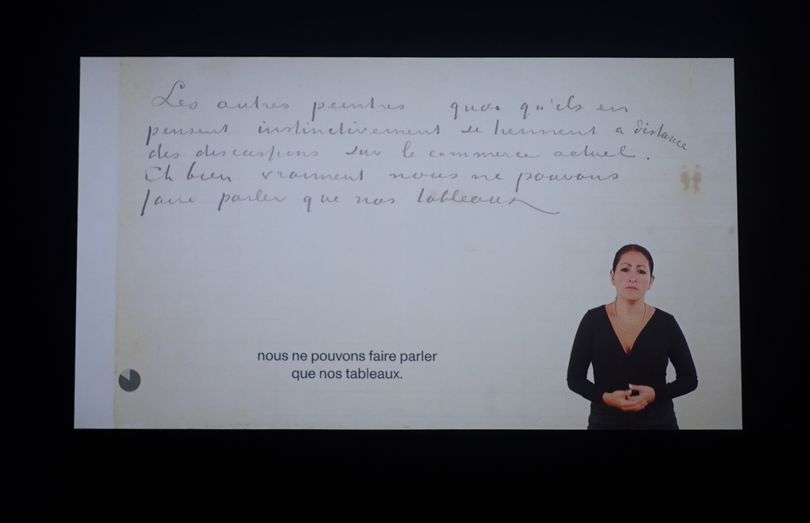 Les autres peintres quoi qu'ils en
pensent instinctivement se tiennent a distance
des discussions sur le commerce actuel.
Eh bien vraiment nous ne pouvons
faire parler que nos tableaux
nous ne pouvons faire parler
que nos tableaux.